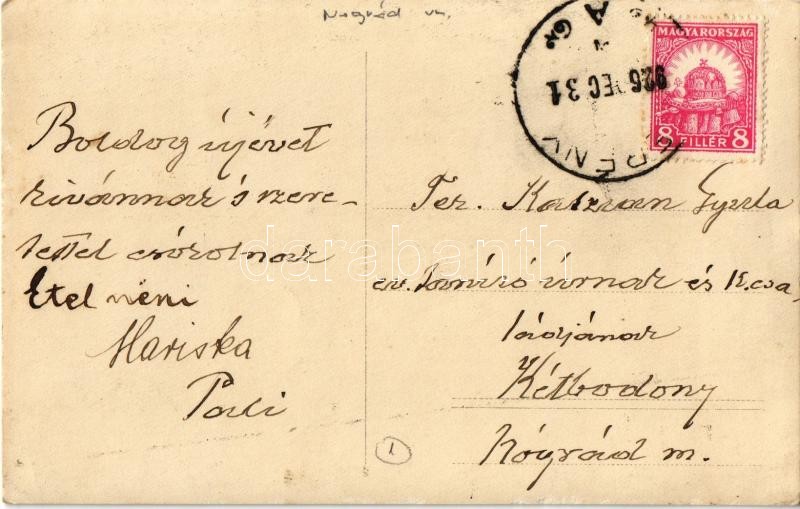 Nógrád m.
MAGYARORSZÁG
8 FILLÉR 8
926 DEC 31
Boldog újévet
kivánnak s szere-
tettel csókolnak
Etel néni
Mariska
Pali
Ter. Kalzman Gyula
ev. tanító úrnak és k. csa-
ládjának
Kétbodony
Nógrád m.
1
darabanth